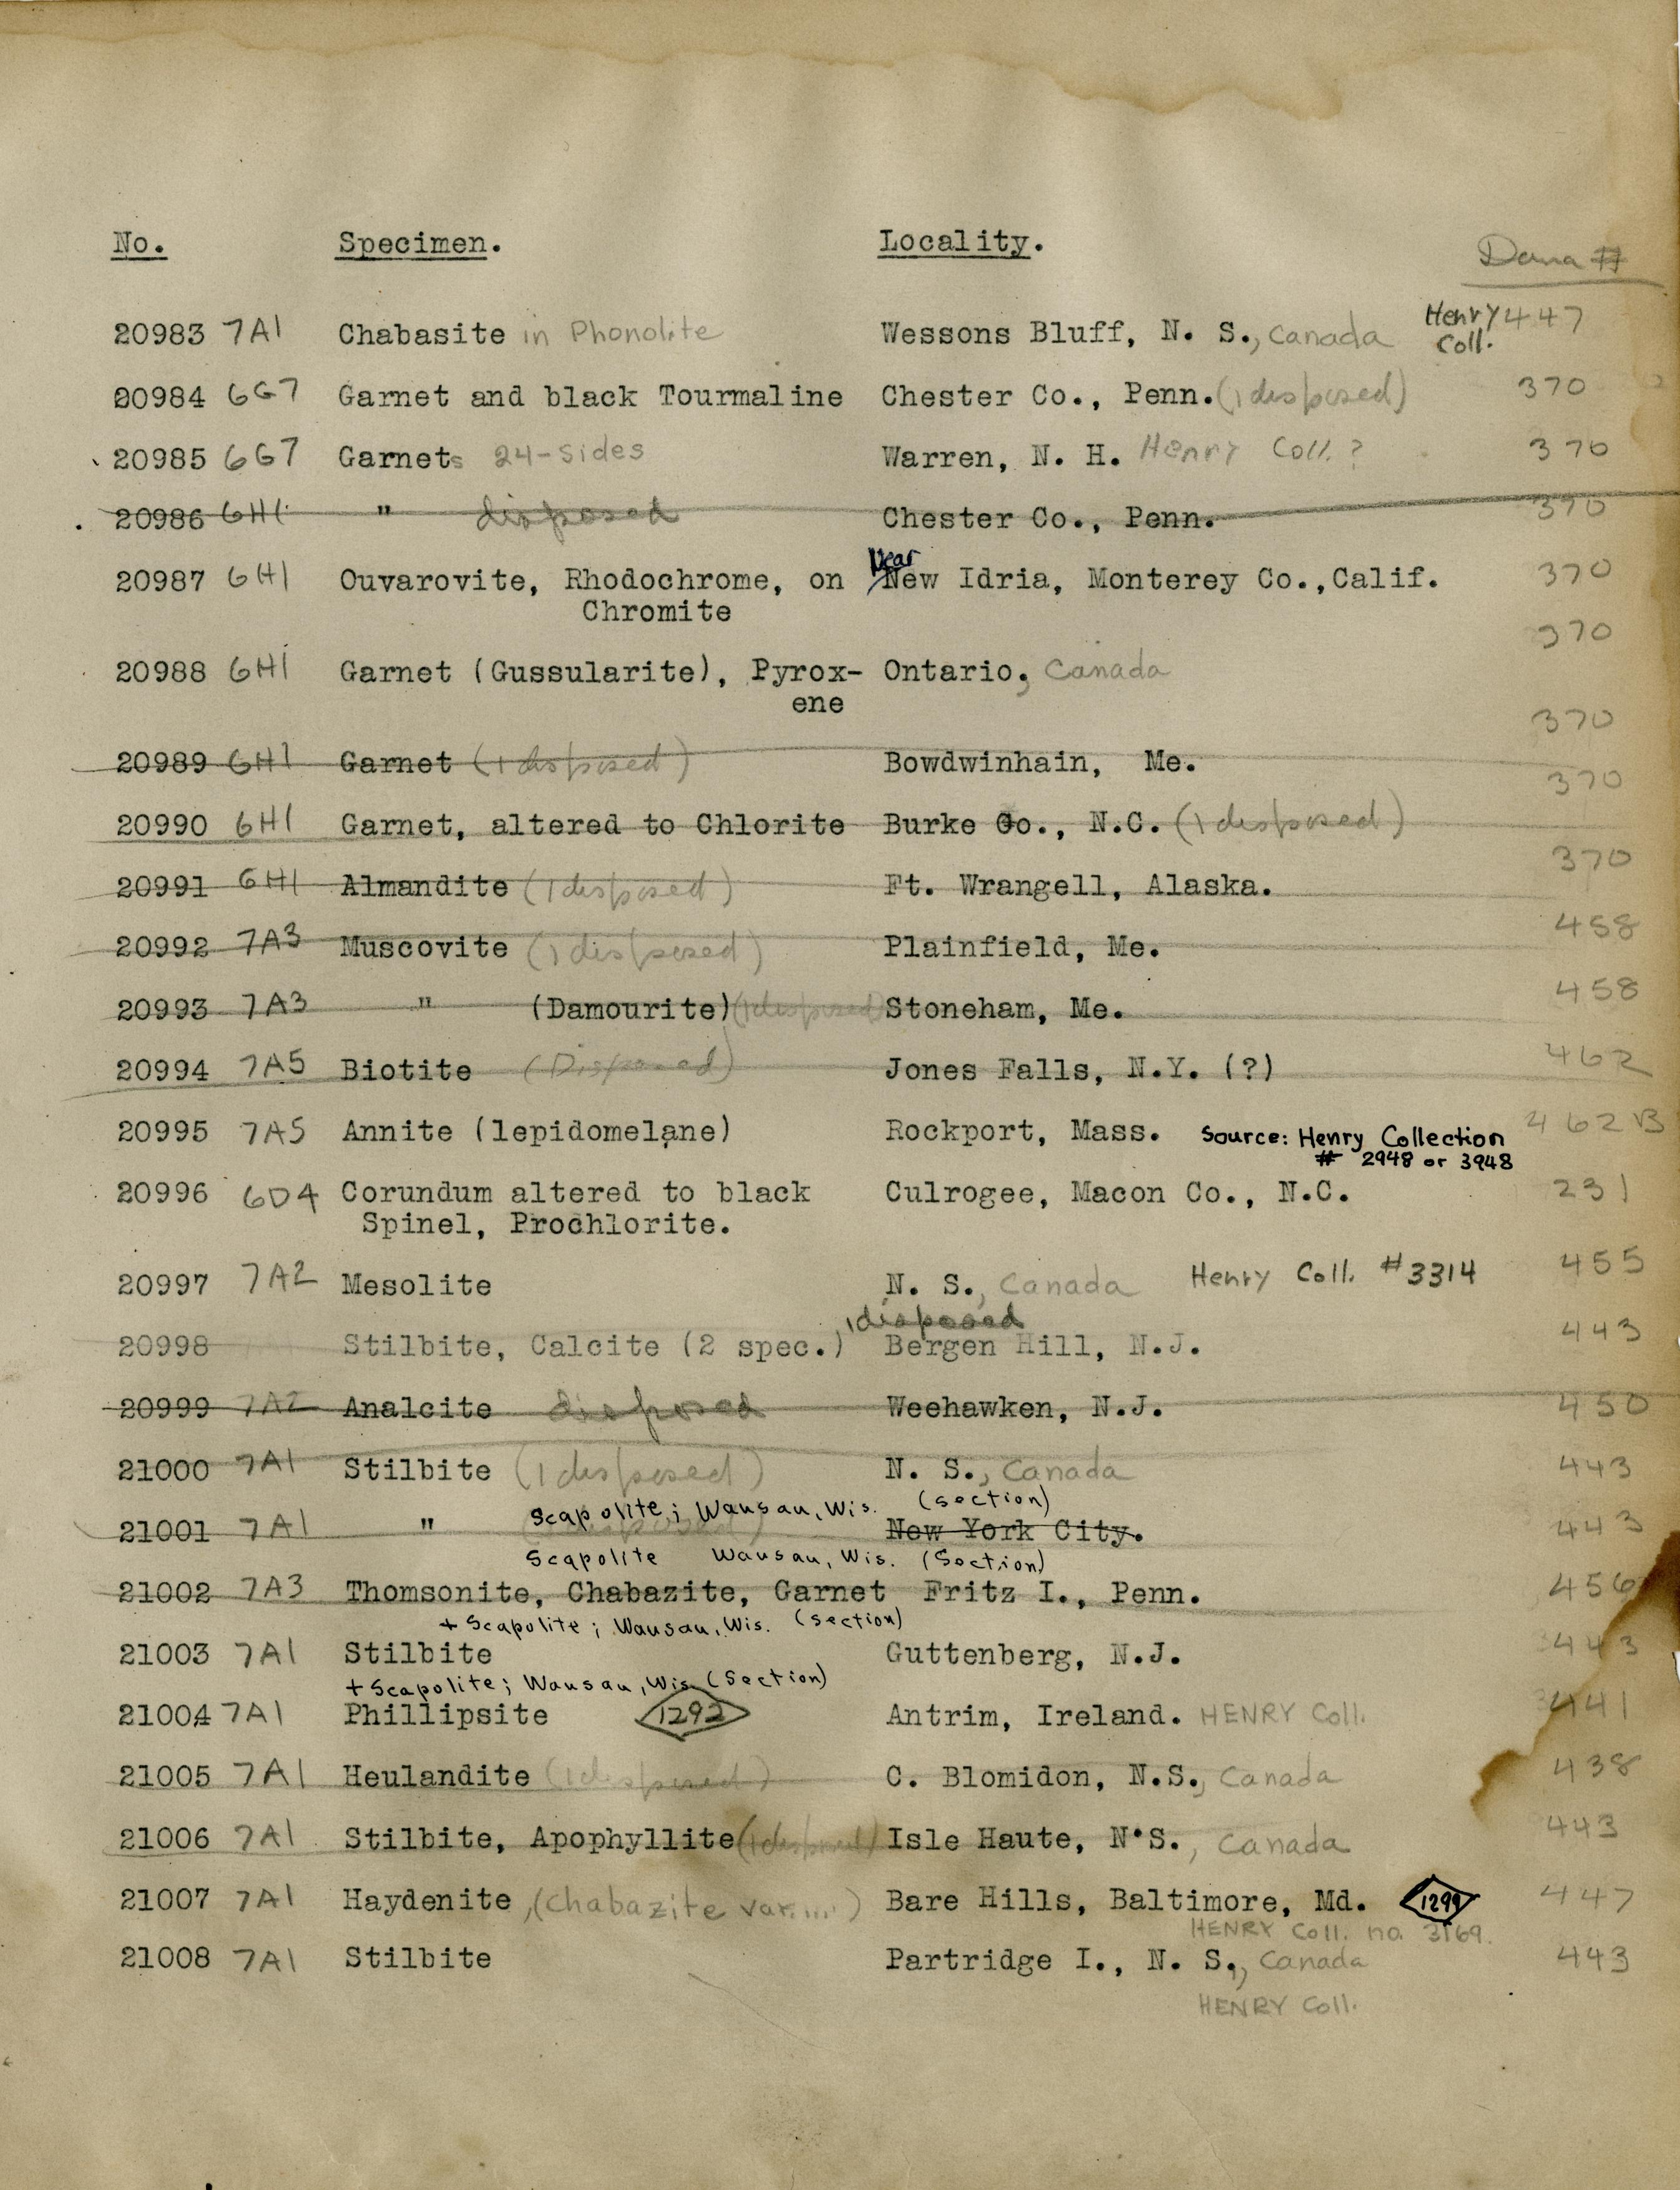 No. Specimen. Locality. Dana #
20983 7A1 Chabasite in Phonolite Wessons Bluff, N. S., Canada Henry Coll. 447
20984 6G7 Garnet and black Tourmaline Chester Co., Penn. (1 disposed) 370
20985 6G7 Garnets 24-sides Warren, N. H. Henry Coll. ? 370
20986 6H1 " disposed Chester Co., Penn. 370
20987 6H1 Ouvarovite, Rhodochrome, on Near New Idria, Monterey Co., Calif. 370
Chromite
370
20988 6H1 Garnet (Gussularite), Pyrox- Ontario, Canada
ene
370
20989 6H1 Garnet (1 disposed) Bowdwinhain, Me.
370
20990 6H1 Garnet, altered to Chlorite Burke Co., N.C. (1 disposed)
370
20991 6H1 Almandite (1 disposed) Ft. Wrangell, Alaska.
20992 7A3 Muscovite (1 disposed) Plainfield, Me. 458
20993 7A3 " (Damourite) (1 disposed) Stoneham, Me. 458
20994 7A5 Biotite (Disposed) Jones Falls, N.Y. (?) 462
20995 7A5 Annite (lepidomelane) Rockport, Mass. Source: Henry Collection 462B
# 2948 or 3948
20996 6D4 Corundum altered to black Culrogee, Macon Co., N.C. 231
Spinel, Prochlorite.
20997 7A2 Mesolite N. S., Canada Henry Coll. #3314 455
1 disposed
20998 Stilbite, Calcite (2 spec.) Bergen Hill, N.J. 443
20999 7A2 Analcite disposed Weehawken, N.J. 450
21000 7A1 Stilbite (1 disposed) N. S., Canada 443
Scapolite; Wausau, Wis. (section)
21001 7A1 " (1 disposed) New York City. 443
Scapolite Wausau, Wis. (Section)
21002 7A3 Thomsonite, Chabazite, Garnet Fritz I., Penn. 456
+ Scapolite; Wausau, Wis. (section)
21003 7A1 Stilbite Guttenberg, N.J. 443
+ Scapolite; Wausau, Wis. (Section)
21004 7A1 Phillipsite 1292 Antrim, Ireland. HENRY Coll. 441
21005 7A1 Heulandite (1 disposed) C. Blomidon, N.S., Canada 438
21006 7A1 Stilbite, Apophyllite (1 disposed) Isle Haute, N.S., Canada 443
21007 7A1 Haydenite, (Chabazite var.) Bare Hills, Baltimore, Md. 1299 447
HENRY Coll. no. 3169.
21008 7A1 Stilbite Partridge I., N. S., Canada 443
HENRY Coll.